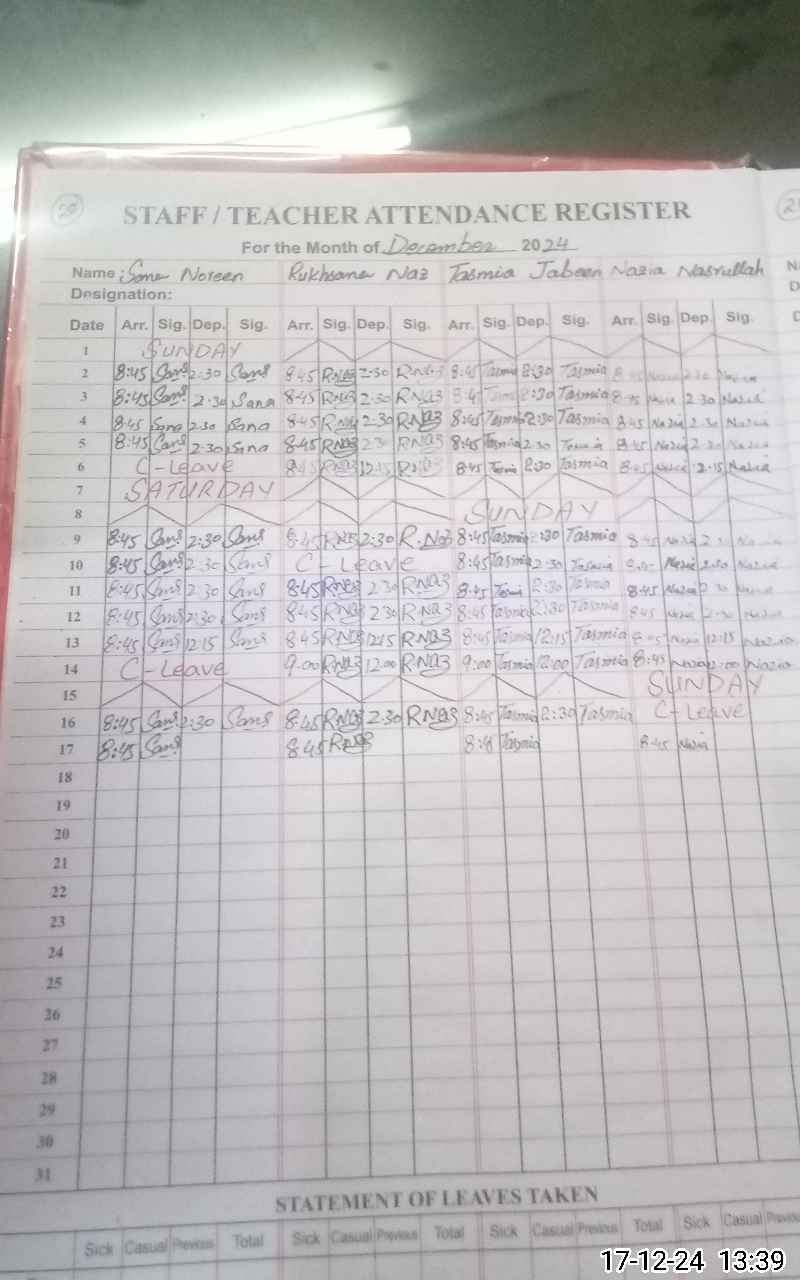 20
STAFF / TEACHER ATTENDANCE REGISTER
For the Month of December 2024
Name: Sana Noreen Rukhsana Naz Tasmia Jabeen Nazia Nasrullah
Designation:
Date Arr. Sig. Dep. Sig. Arr. Sig. Dep. Sig. Arr. Sig. Dep. Sig. Arr. Sig. Dep. Sig.
1 SUNDAY
2 8:45 Sana 2:30 Sana 8:45 RNaz 2:30 RNaz 8:45 Tasmia 2:30 Tasmia 8:45 Nazia 2:30 Nazia
3 8:45 Sana 2:30 Sana 8:45 RNaz 2:30 RNaz 8:45 Tasmia 2:30 Tasmia 8:45 Nazia 2:30 Nazia
4 8:45 Sana 2:30 Sana 8:45 RNaz 2:30 RNaz 8:45 Tasmia 2:30 Tasmia 8:45 Nazia 2:30 Nazia
5 8:45 Sana 2:30 Sana 8:45 RNaz 2:30 RNaz 8:45 Tasmia 2:30 Tasmia 8:45 Nazia 2:30 Nazia
6 C-Leave 8:45 RNaz 12:15 RNaz 8:45 Tasmia 2:30 Tasmia 8:45 Nazia 12:15 Nazia
7 SATURDAY
8 SUNDAY
9 8:45 Sana 2:30 Sana 8:45 RNaz 2:30 R.Naz 8:45 Tasmia 2:30 Tasmia 8:45 Nazia 2:30 Nazia
10 8:45 Sana 2:30 Sana C-Leave 8:45 Tasmia 2:30 Tasmia Nazia 2:30 Nazia
11 8:45 Sana 2:30 Sana 8:45 RNaz 2:30 RNaz 8:45 Tasmia 2:30 Tasmia 8:45 Nazia 2:30 Nazia
12 8:45 Sana 2:30 Sana 8:45 RNaz 2:30 RNaz 8:45 Tasmia 2:30 Tasmia 8:45 Nazia 2:30 Nazia
13 8:45 Sana 12:15 Sana 8:45 RNaz 12:15 RNaz 8:45 Tasmia 12:15 Tasmia 8:45 Nazia 12:15 Nazia
14 C-Leave 9:00 RNaz 12:00 RNaz 9:00 Tasmia 12:00 Tasmia 8:45 Nazia 12:00 Nazia
15 SUNDAY
16 8:45 Sana 2:30 Sana 8:45 RNaz 2:30 RNaz 8:45 Tasmia 2:30 Tasmia C-Leave
17 8:45 Sana 8:45 RNaz 8:45 Tasmia 8:45 Nazia
18
19
20
21
22
23
24
25
26
27
28
29
30
31
STATEMENT OF LEAVES TAKEN
Sick Casual Previous Total Sick Casual Previous Total Sick Casual Previous Total Sick Casual Previous
17-12-24 13:39